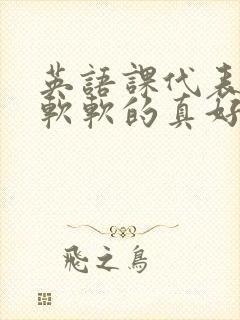 英語課代表
軟軟的真好
飛之鳥